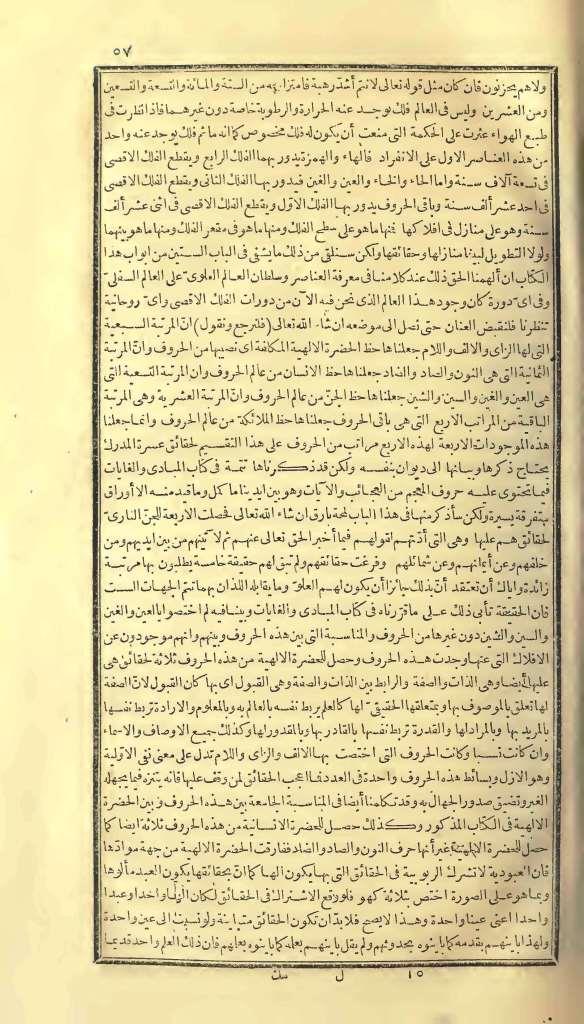 ٥٧
ولاهم يحزنون فان كان مثل قوله تعالى لانتم أشد رهبة فامتزاجه من الستة والمائة والتسعة والتسعين
ومن العشرين وليس فى العالم فلك يوجد عنه الحرارة والرطوبة خاصة دون غيرهما فاذا نظرت فى
طبع الهواء عثرت على الحكمة التى منعت أن يكون له فلك مخصوص كما انه ما ثم فلك يوجد عنه واحد
من هذه العناصر الاول على الانفراد فالهاء والهمزة يدور بهما الفلك الرابع ويقطع الفلك الاقصى
فى تسعة آلاف سنة واما الحاء والخاء والعين والغين فيدور بها الفلك الثانى ويقطع الفلك الاقصى
فى احد عشر ألف سنة وباقى الحروف يدور بها الفلك الاول ويقطع الفلك الاقصى فى اثنى عشر ألف
سنة وهو على منازل فى افلاكها فمنها ما هو على سطح الفلك ومنها ما هو فى مقعر الفلك ومنها ما هو بينهما
ولولا التطويل لبينا منازلها وحقائقها ولكن سنلقى من ذلك ما يشفى فى الباب الستين من ابواب هذا
الكتاب ان ألهمنا الحق ذلك عند كلامنا فى معرفة العناصر وسلطان العالم العلوى على العالم السفلى
وفى اى دورة كان وجود هذا العالم الذى نحن فيه الآن من دورات الفلك الاقصى واى روحانية
تنظرنا فلنقبض العنان حتى نصل الى موضعه ان شاء الله تعالى (فلنرجع ونقول) انّ المرتبة السبعية
التى لها الزاى والالف واللام جعلناها حظ الحضرة الالهية المكلفة اى نصيبها من الحروف وانّ المرتبة
الثمانية التى هى النون والصاد والضاد جعلناها حظ الانسان من عالم الحروف وان المرتبة التسعية التى
هى العين والغين والسين والشين جعلناها حظ الجنّ من عالم الحروف وانّ المرتبة العشرية وهى المرتبة
الباقية من المراتب الاربع التى هى باقى الحروف جعلناها حظ الملائكة من عالم الحروف وانما جعلنا
هذه الموجودات الاربعة لهذه الاربع مراتب من الحروف على هذا التقسيم لحقائق عسرة المدرك
يحتاج ذكرها وبيانها الى ديوان بنفسه ولكن قد ذكرناها تتمة فى كتاب المبادى والغايات
فيما تحتوى عليه حروف المعجم من العجائب والآيات وهو بين ايدينا ما كمل وما قيد منه الا أوراق
متفرقة يسيرة ولكن سأذكر منها فى هذا الباب لمحة بارق ان شاء الله تعالى فحصلت الاربعة للجنّ النارى
لحقائق هم عليها وهى التى أدتهم لقولهم فيما أخبر الحق تعالى عنهم ثم لآتينهم من بين ايديهم ومن
خلفهم وعن أيمانهم وعن شمائلهم وفرغت حقائقهم ولم تبق لهم حقيقة خامسة يطلبون بها مرتبة
زائدة واياك ان تعتقد أن ذلك جائز أن يكون لهم العلو وما يقابله اللذان بهما تتم الجهات الست
فان الحقيقة تأبى ذلك على ما قررناه فى كتاب المبادى والغايات وبينا فيه لم اختصوا بالعين والغين
والسين والشين دون غيرها من الحروف والمناسبة التى بين هذه الحروف وبينهم وانهم موجودون عن
الافلاك التى عنها وجدت هذه الحروف وحصل للحضرة الالهية من هذه الحروف ثلاثة لحقائق هى
عليها أيضا وهى الذات والصفة والرابط بين الذات والصفة وهى القبول اى بها كان القبول لانّ الصفة
لها تعلق بالموصوف بها وبمتعلقها الحقيقى لها كالعلم يربط نفسه بالعالم به وبالمعلوم والارادة تربط نفسها
بالمريد بها وبالمراد لها والقدرة تربط نفسها بالقادر بها وبالمقدور لها وكذلك جميع الاوصاف والاسماء
وان كانت نسبا وكانت الحروف التى اختصت بها الالف والزاى واللام تدل على معنى نفى الاولية
وهو الازل وبسائط هذه الحروف واحدة فى العدد فما اعجب الحقائق لمن وقف عليها فانه يتنزه فيما يجهله
الغير وتضيق صدور الجهال به وقد تكلمنا أيضا فى المناسبة الجامعة بين هذه الحروف وبين الحضرة
الالهية فى الكتاب المذكور وكذلك حصل للحضرة الانسانية من هذه الحروف ثلاثة ايضا كما
حصل للحضرة الالهية غير أنها حرف النون والصاد والضاد ففارقت الحضرة الالهية من جهة موادّها
فان العبودية لا تشرك الربوبية فى الحقائق التى بها يكون الها كما ان بحقائقها يكون العبد مألوها
وبما هو على الصورة اختص بثلاثة كهو فلو وقع الاشتراك فى الحقائق لكان الها واحدا وعبدا
واحدا اعنى عينا واحدة وهذا لا يصح فلا بدّ ان تكون الحقائق متباينة ولو نسبت الى عين واحدة
ولهذا باينهم بقدمه كما باينوه بحدوثهم ولم يقل باينهم بعلمه كما باينوه بعلمهم فان ذلك العلم واحد قديما
١٥ ل مك